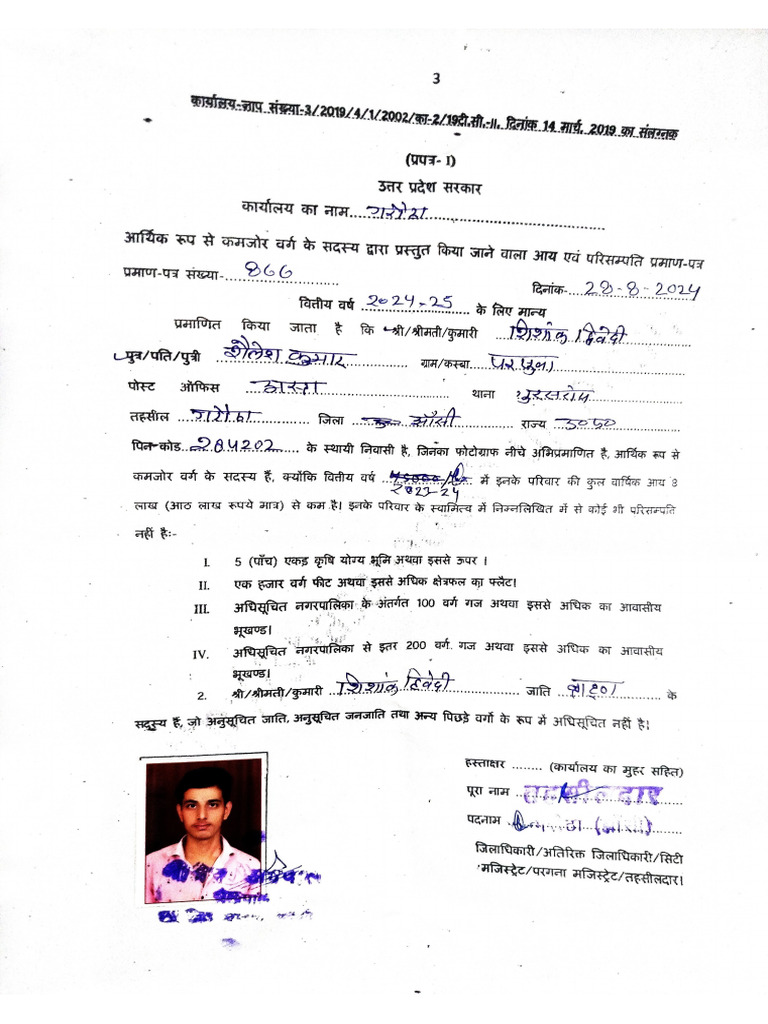 3
कार्यालय-ज्ञाप संख्या-3/2019/4/1/2002/का-2/19टी.सी.-II, दिनांक 14 मार्च, 2019 का संलग्नक
(प्रपत्र- I)
उत्तर प्रदेश सरकार
कार्यालय का नाम
आर्थिक रूप से कमजोर वर्ग के सदस्य द्वारा प्रस्तुत किया जाने वाला आय एवं परिसम्पति प्रमाण-पत्र
प्रमाण-पत्र संख्या- 866 दिनांक- 28-8-2024
वित्तीय वर्ष 2024-25 के लिए मान्य
प्रमाणित किया जाता है कि श्री/श्रीमती/कुमारी शिशांक द्विवेदी
पुत्र/पति/पुत्री शैलेश कुमार ग्राम/कस्बा
पोस्ट ऑफिस थाना
तहसील जिला झाँसी राज्य उ०प्र०
पिन-कोड 284202 के स्थायी निवासी है, जिनका फोटोग्राफ नीचे अभिप्रमाणित है, आर्थिक रूप से
कमजोर वर्ग के सदस्य हैं, क्योंकि वितीय वर्ष 2023-24 में इनके परिवार की कुल वार्षिक आय 8
लाख (आठ लाख रूपये मात्र) से कम है। इनके परिवार के स्वामित्व में निम्नलिखित में से कोई भी परिसम्पति
नहीं है:-
I. 5 (पाँच) एकड़ कृषि योग्य भूमि अथवा इससे ऊपर ।
II. एक हजार वर्ग फीट अथवा इससे अधिक क्षेत्रफल का फ्लैट।
III. अधिसूचित नगरपालिका के अंतर्गत 100 वर्ग गज अथवा इससे अधिक का आवासीय
भूखण्ड।
IV. अधिसूचित नगरपालिका से इतर 200 वर्ग गज अथवा इससे अधिक का आवासीय
भूखण्ड।
2. श्री/श्रीमती/कुमारी शिशांक द्विवेदी जाति के
सदस्य हैं, जो अनुसूचित जाति, अनुसूचित जनजाति तथा अन्य पिछड़े वर्गो के रूप में अधिसूचित नहीं है।
हस्ताक्षर ........ (कार्यालय का मुहर सहित)
पूरा नाम तहसीलदार
पदनाम
जिलाधिकारी/अतिरिक्त जिलाधिकारी/सिटी
मजिस्ट्रेट/परगना मजिस्ट्रेट/तहसीलदार।